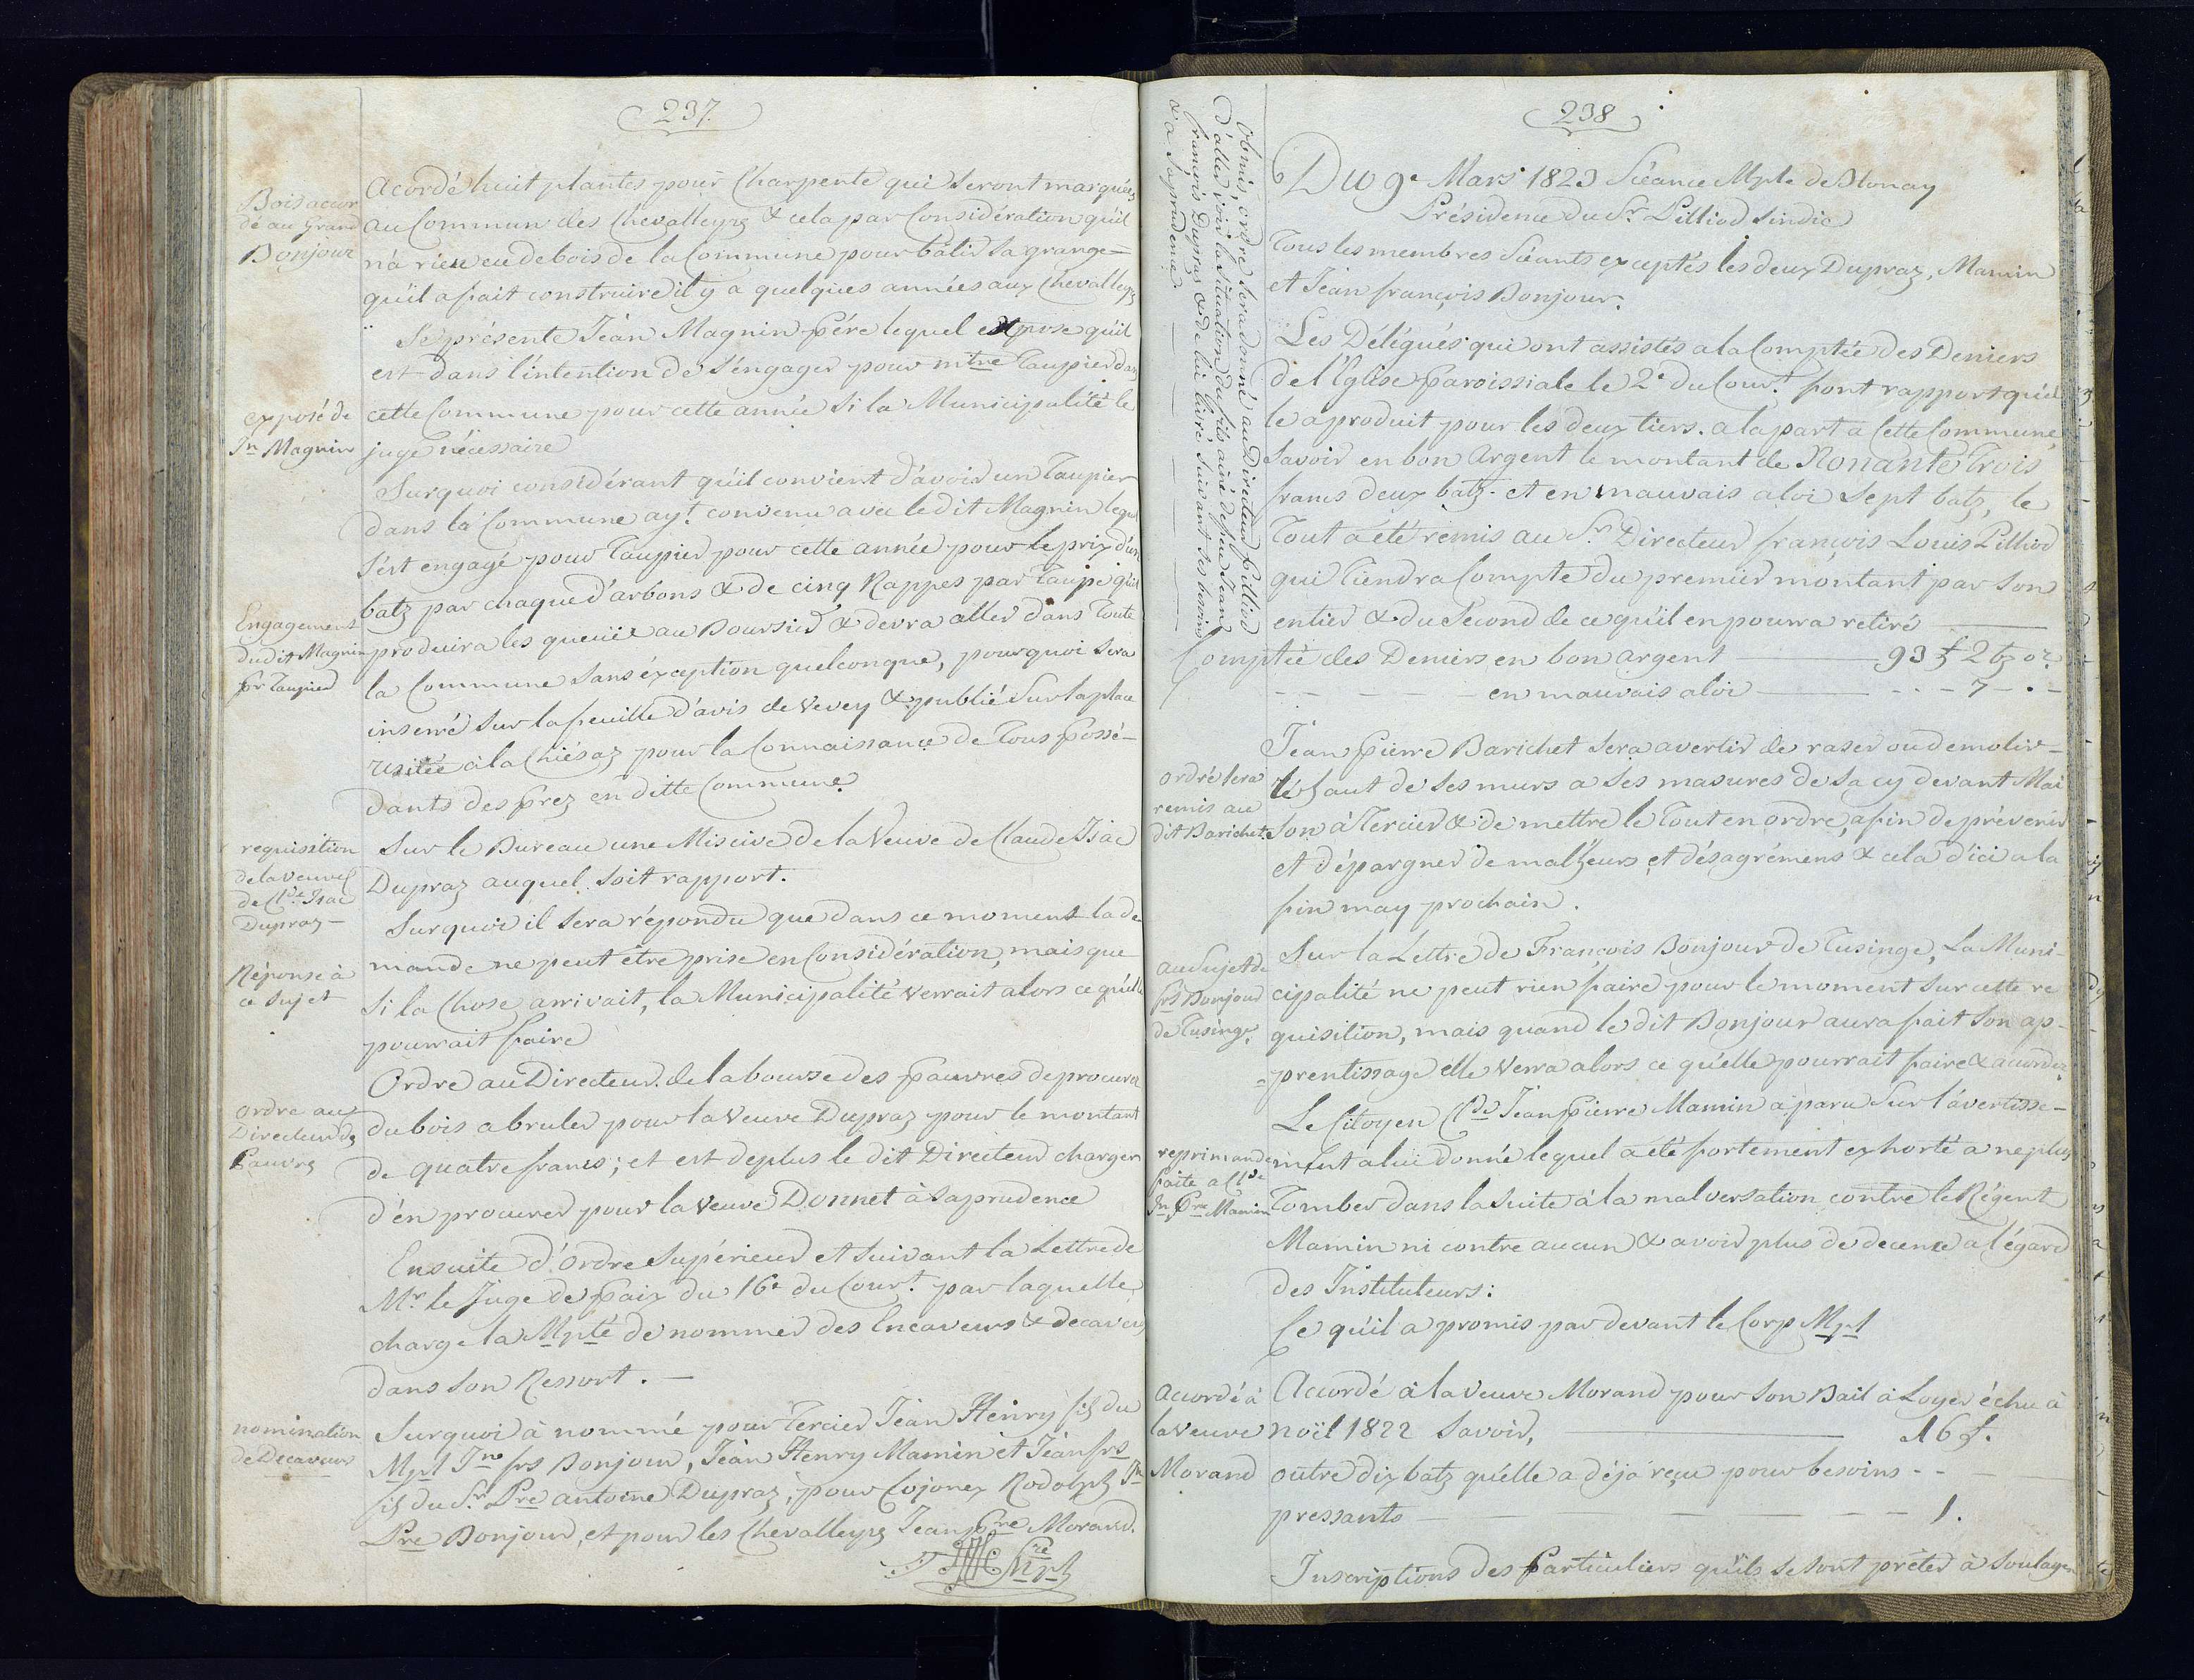 237.
Bois accor
dé au Grand
Bonjour
Acordé huit plantes pour Charpente qui seront marquées
au Commun des Chevalleyrs & cela par Considération qu'il
n'a rien eu de bois de la Commune pour bâtir sa grange
qu'il a fait construire il y a quelques années aux Chevalleyrs
Se présente Jéan Magnin pére lequel expose qu'il
est dans l'intention de s'éngager pour mtre Taupier dans
exposé de
Jn Magnin
cette Commune pour cette année si la Municipalité le
juge nécessaire
Surquoi considérant qu'il convient d'avoir un Taupier
dans la Commune ayt. convenu avec le dit Magnin lequel
s'ést engagé pour Taupier pour cette année pour le prix d'un
Engagement
du dit Magnin
pr Taupier
batz par chaque d'arbons & de cinq Rappes par Taupe qu'il
produira les queuüe au Boursier & devra aller dans Toute
la Commune sans éxception quelconque, pourquoi sera
inserré sur la feuille d'avis de Vevey & publié sur la place
usitée à la Chiésaz pour la Connaissance de Tous possé-
dants des prez en ditte Commune
requisition
de la veuve
de Cde Isac
Dupraz
Sur le Bureau une Miscive de la Veuve de Claude Isac
Dupraz auquel soit rapport.
Réponse à
ce sujet
Surquoi il sera répondu que dans ce moment la de
mande ne peut être prise en Considération, mais que
si la Chose arrivait, la Municipalité verrait alors ce qu'elle
pourrait faire
ordre au
Directeur des
Pauvrs
Ordre au Directeur de la bourse des pauvres de procurer
du bois a bruler pour la veuve Dupraz pour le montant
de quatre francs; et est de plus le dit Directeur charger
d'én procurer pour la veuve Donnet à sa prudence
Ensuite d'ordre supérieur et suivant la Lettre de
Mr. le Juge de paix du 16e du Court. par laquelle
charge la Mpté de nommer des Encaveurs & decaveurs
dans son Ressort.
nomination
de Decaveurs
Surquoi à nommé pour Tercier Jéan Henry fils du
Mpl Jn frs Bonjour, Jéan Henry Mamin et Jéan frs
fils du Sr. Pre antoine Dupraz, pour Cojonex Rodolph Jn
Pre Bonjour, et pour les Chevalleyrs Jean Pre Morand.
238
Obmis, ordre sera donné au Directeur Pilliod
d'aller voir la situation du fils ainé de feu Jean
françois Dupraz & de lui faire suivant ses besoins
à sa prudence
Du 9e Mars 1823 Séance Mple de Blonay
Présidence du Sr. Pilliod Sindic
Tous les membres séants exceptés les deux Dupraz, Mamin
et Jéan françois Bonjour.
Les Délégués qui ont assistés a la Comptée des Deniers
de l'Eglise paroissiale le 2e du Court. font rapport qu'él
le a produit pour les deux tiers a la part à Cette Commune,
Savoir en bon Argent le montant de Nonante Trois
francs deux batz. et en mauvais aloi sept batz, le
Tout a été remis au Sr. Directeur françois Louis Pilliod
qui Tiendra Compte du premier montant par son
entier & du Second de ce qu'il en pourra retiré
Comptée des Deniers en bon argent 93 f 2 bz 0 r.
en mauvais aloi 7 .
ordre sera
remis au
dit Barichet
Jean pierre Barichet sera avertir de raser ou demolir
le haut de ses murs a ses masures de sa cy devant Mai
son à Tercier & de mettre le Tout en ordre, afin de prévenir
et d'épargner de malheurs et désagrémens & cela d'ici a la
fin may prochain.
au Sujet de
frs Bonjour
de Tusinge
Sur la Lettre de François Bonjour de Tusinge, La Muni-
cipalité ne peut rien faire pour le moment sur cette re
quisition, mais quand le dit Bonjour aura fait son ap-
prentissage elle verra alors ce qu'elle pourrait faire & acorder.
reprimande
faite a Cde
Jn Pre Mamin
Le Citoyen Cde Jean pierre Mamin à paru sur l'avertisse-
ment a lui donné lequel a été fortement exhorté a ne plus
Tomber dans la suite à la malversation contre le Régent
Mamin ni contre aucun & avoir plus de decence a l'égard
des Instituteurs:
Ce qu'il a promis par devant le Corp Mpl
Accordé à
la veuve
Morand
Accordé à la veuve Morand pour son Bail à Loyer échu à
noël 1822 Savoir, 16 f.
outre dix batz qu'elle a déjà reçu pour besoins
pressants 1.
Inscriptions des Particuliers qu'ils se sont prêtés à soulager